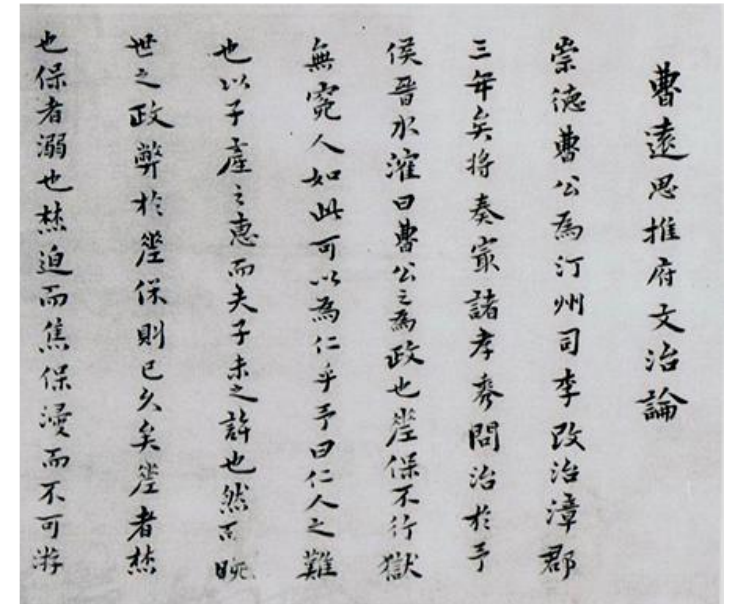 曹遠思推府文治論
崇德曹公為汀州司李改治漳郡
三年矣將奏最諸孝秀問治於予
侯晉水灌曰曹公之為政也蓙保不行獄
無冤人如此可以為仁乎予曰仁人之難
也以子產之惠而夫子未之許也然而晚
世之政弊於蓙保則已久矣蓙者焚
也保者溺也焚迫而焦保漫而不可游